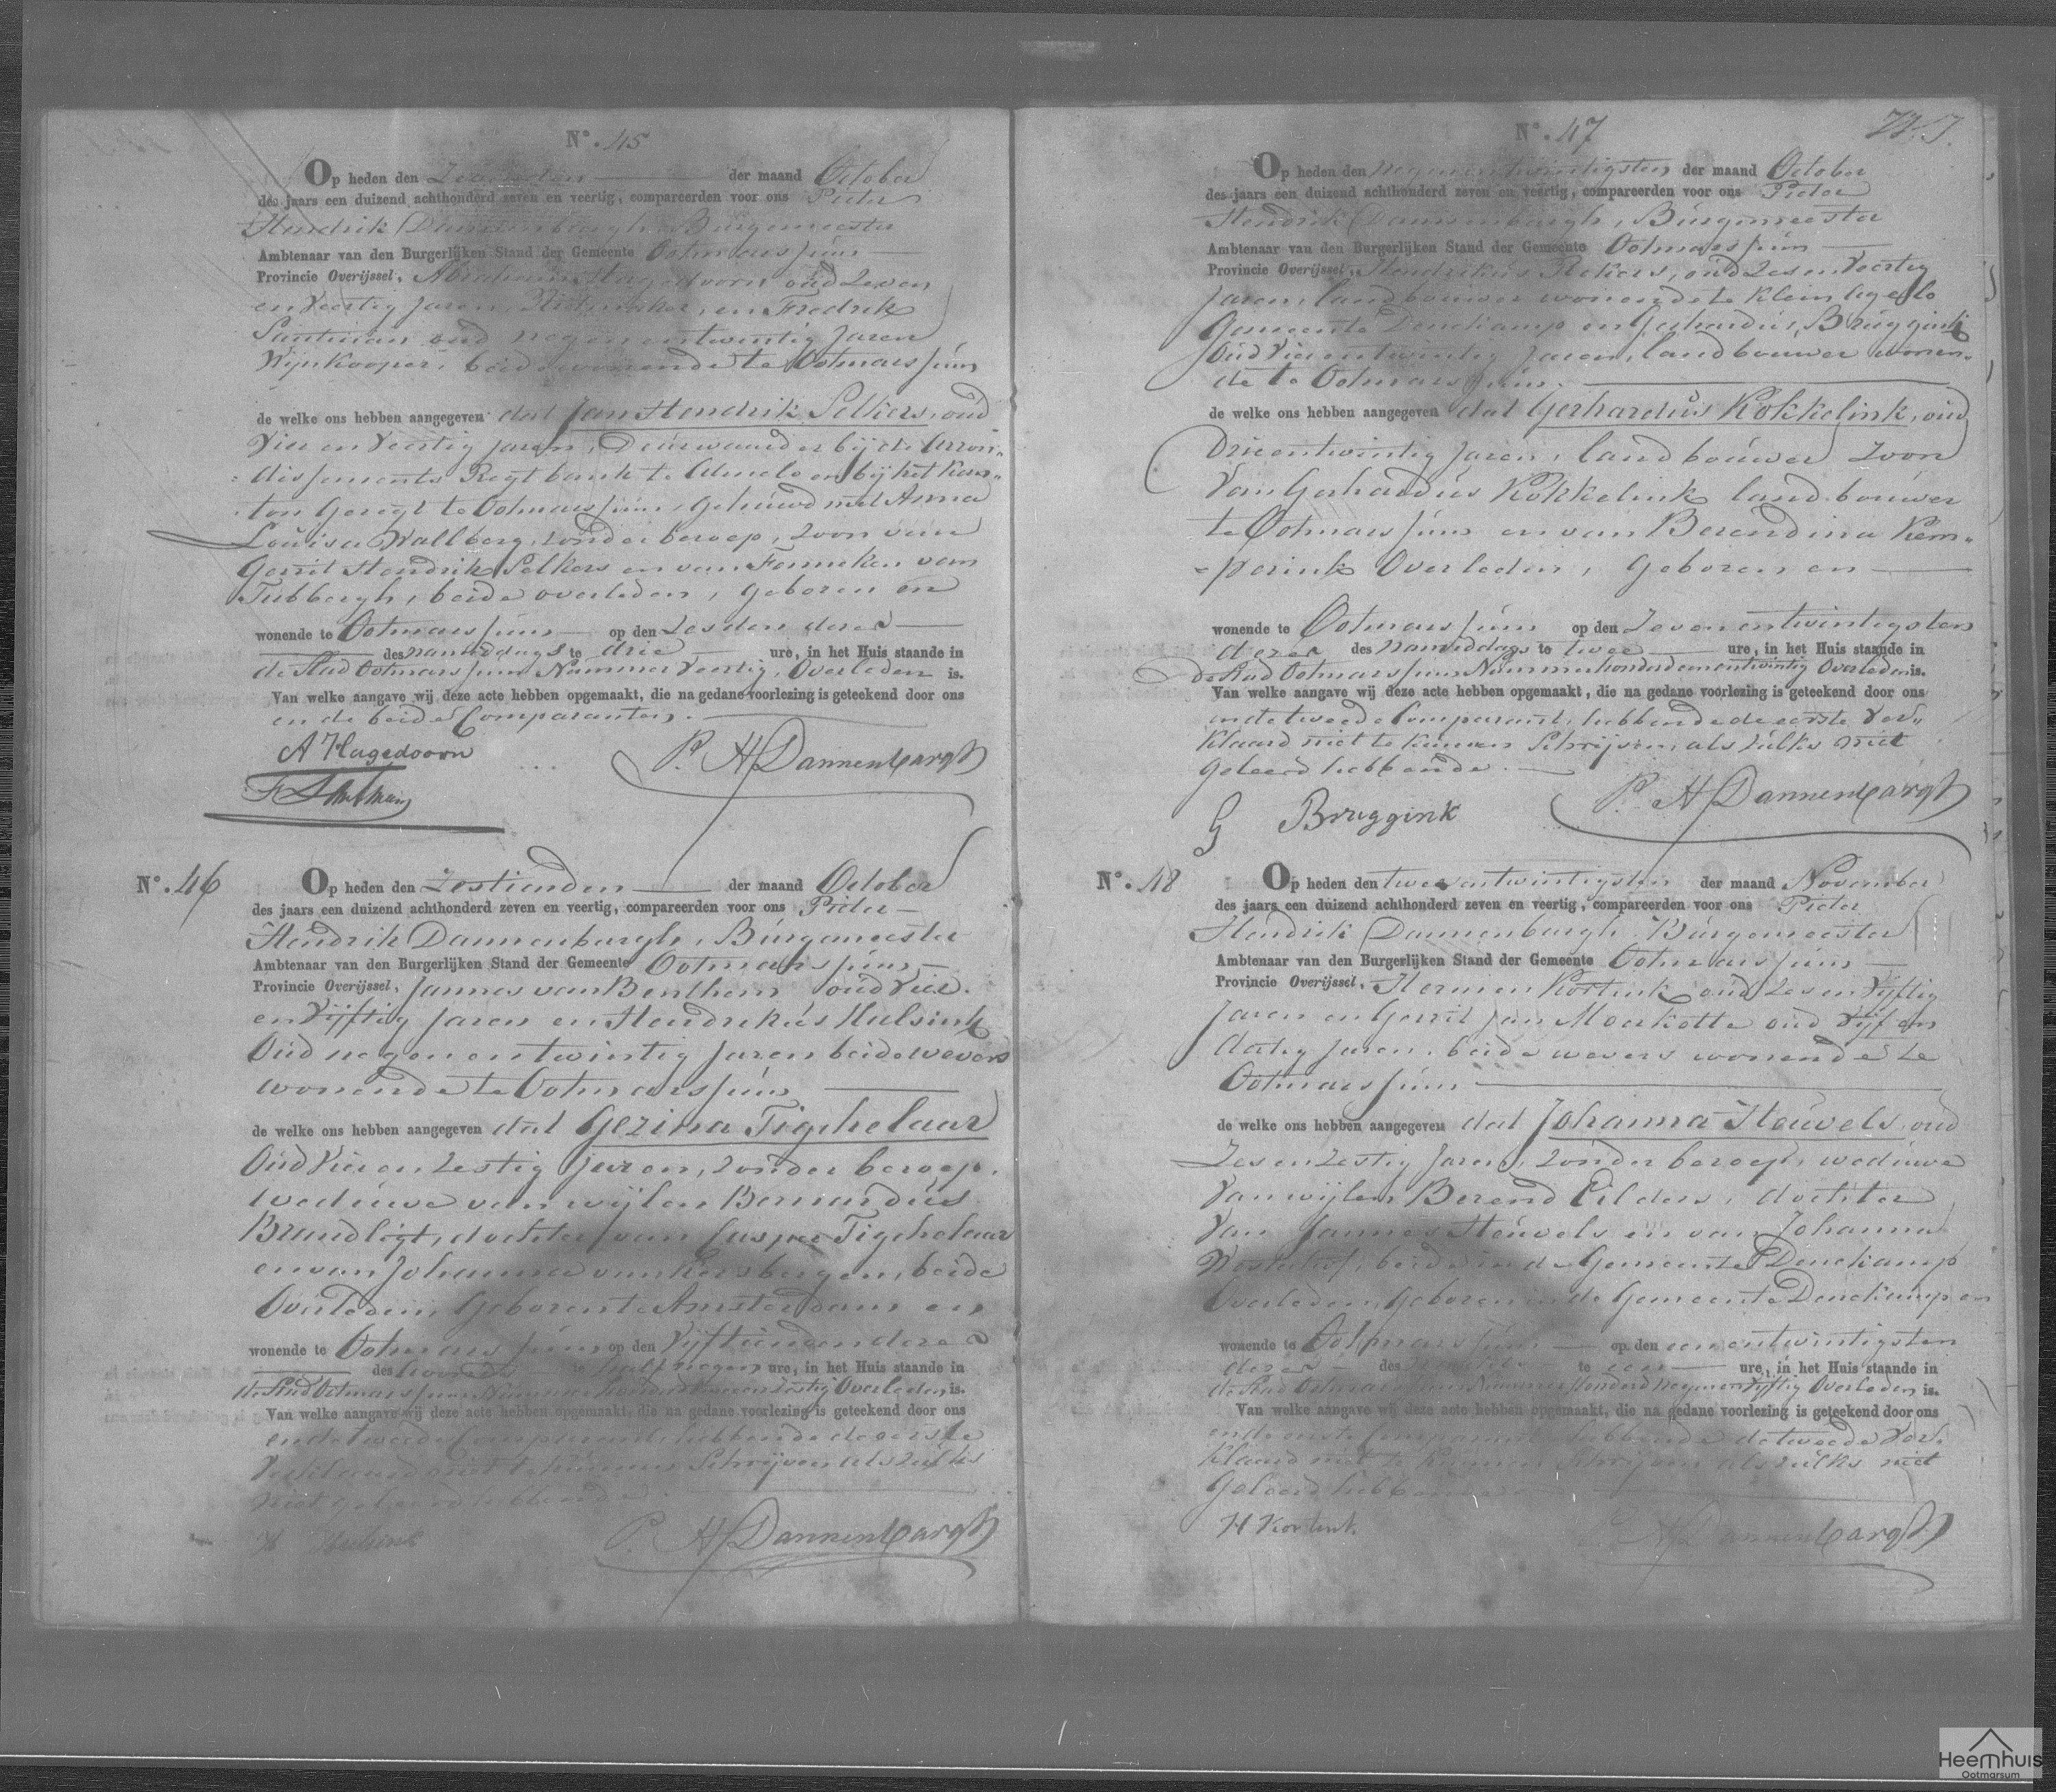 N°. 45
Op heden den Zevenden der maand October
des jaars een duizend achthonderd zeven en veertig, compareerden voor ons Pieter
Hendrik Dannenbargh, Burgemeester
Ambtenaar van den Burgerlijken Stand der Gemeente Ootmarssum
Provincie Overijssel, Abraham Hagedoorn oud Zeven
en Veertig Jaren, en Fredrik
Santman oud negen en twintig Jaren
Wijnkooper, beide wonende te Ootmarssum
de welke ons hebben aangegeven dat Jan Hendrik Selkers, oud
Vier en Veertig jaren, Deurwaarder bij de Arron„
dissements Regtbank te Almelo en bij het Kan„
ton Geregt te Ootmarssum, gehuwd met Anna
Louisa Wallberg, zonder beroep, Zoon van
Gerrit Hendrik Selkers en van Fenneken van
Tubbergh, beide overleden, geboren en
wonende te Ootmarssum op den Zesden dezer
des namiddags te drie ure, in het Huis staande in
de Stad Ootmarssum Nummer Veertig, Overleden is.
Van welke aangave wij deze acte hebben opgemaakt, die na gedane voorlezing is geteekend door ons
en de beide Comparanten.
A Hagedoorn
P. H Dannenbargh
F Santman
N°. 46
Op heden den Zestienden der maand October
des jaars een duizend achthonderd zeven en veertig, compareerden voor ons Pieter
Hendrik Dannenbargh, Burgemeester
Ambtenaar van den Burgerlijken Stand der Gemeente Ootmarssum
Provincie Overijssel, Jannes van Benthem oud Vier
en Vijftig Jaren en Hendrikus Hulsink
Oud negen en twintig Jaren beide wevers
wonende te Ootmarssum
de welke ons hebben aangegeven dat Gezina Tigchelaar
Oud Vier en Zestig Jaren, zonder beroep,
weduwe van wijlen Bernardus
Brandligt, dochter van Casper Tigchelaar
en van Johanna van Kersbergen, beide
Overleden, Geboren te Amsterdam en
wonende te Ootmarssum op den Vijftienden dezer
des avonds te half negen ure, in het Huis staande in
de Stad Ootmarssum Nummer honderd en Zestig Overleden is.
Van welke aangave wij deze acte hebben opgemaakt, die na gedane voorlezing is geteekend door ons
en de tweede Comparant, hebbende de eerste
Verklaard niet te kunnen Schrijven als zulks
niet geleerd hebbende.
H Hulsink
P. H Dannenbargh
N°. 47
Op heden den negen en twintigsten der maand October
des jaars een duizend achthonderd zeven en veertig, compareerden voor ons Pieter
Hendrik Dannenbargh, Burgemeester
Ambtenaar van den Burgerlijken Stand der Gemeente Ootmarssum
Provincie Overijssel, Hendrikus Rekers, oud Zes en Veertig
Jaren, landbouwer wonende te Klein Agelo
Gemeente Denekamp en Gerhardus Bruggink
Oud Vier en twintig Jaren, landbouwer wonen„
de te Ootmarssum.
de welke ons hebben aangegeven dat Gerhardus Kokkelink, oud
Drie en twintig Jaren, landbouwer Zoon
Van Gerhardus Kokkelink landbouwer
te Ootmarssum en van Berendina Kem„
perink Overleden, Geboren en
wonende te Ootmarssum op den Zeven en twintigsten
dezer des namiddags te twee ure, in het Huis staande in
de Stad Ootmarssum Nummer honderd een en twintig Overleden is.
Van welke aangave wij deze acte hebben opgemaakt, die na gedane voorlezing is geteekend door ons
en de tweede Comparant, hebbende de eerste Ver„
klaard niet te kunnen Schrijven, als zulks niet
geleerd hebbende.
P. H Dannenbargh
G Bruggink
N°. 48
Op heden den twee en twintigsten der maand November
des jaars een duizend achthonderd zeven en veertig, compareerden voor ons Pieter
Hendrik Dannenbargh Burgemeester
Ambtenaar van den Burgerlijken Stand der Gemeente Ootmarssum
Provincie Overijssel, Hermen Kortink oud Zes en Vijftig
Jaren en Gerrit Jan Moerkotte oud Vijf en
dertig Jaren, beide wevers wonende te
Ootmarssum
de welke ons hebben aangegeven dat Johanna Heuvels, oud
Zes en Zestig Jaren, zonder beroep, weduwe
Van wijlen Berend Eilders, dochter
Van Jannes Heuvels en van Johanna
beide in de Gemeente Denekamp
Overleden, Geboren in de Gemeente Denekamp en
wonende te Ootmarssum op den een en twintigsten
dezer des te een ure, in het Huis staande in
de Stad Ootmarssum Nummer Honderd negen en Vijftig Overleden is.
Van welke aangave wij deze acte hebben opgemaakt, die na gedane voorlezing is geteekend door ons
en de eerste Comparant hebbende de tweede Ver„
klaard niet te kunnen Schrijven als zulks niet
Geleerd hebbende
H Kortink
P. H Dannenbargh
Heemhuis
Ootmarsum